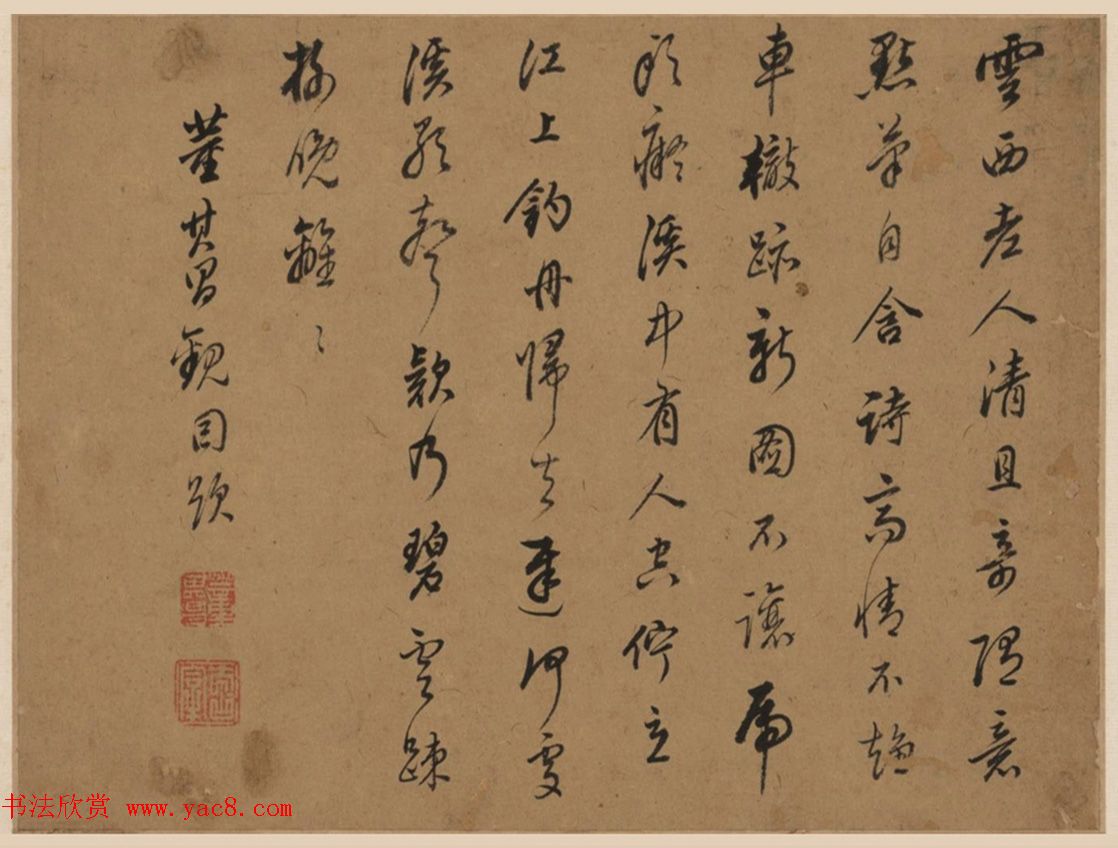 雲西老人清且奇隨意
點筆自含詩高情不趁
車轍跡新圖不讓虎
頭癡溪中有人空佇立
江上釣舟歸去遲何處
溪歌聲欵乃碧雲疎
樹晚離〻
董其昌觀因題
书法欣赏 www.yac8.com